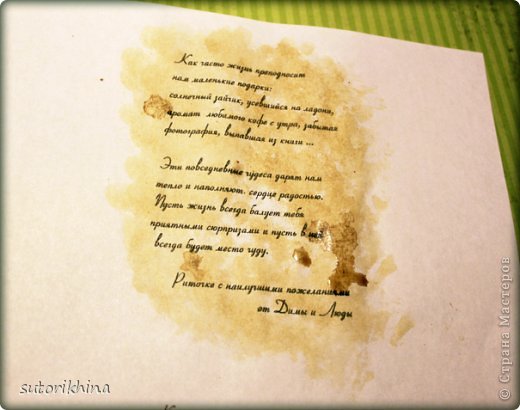 Как часто жизнь преподносит
нам маленькие подарки:
солнечный зайчик, усевшийся на ладони,
аромат любимого кофе с утра, забытая
фотография, выпавшая из книги ...
Эти повседневные чудеса дарят нам
тепло и наполняют. сердце радостью.
Пусть жизнь всегда балует тебя
приятными сюрпризами и пусть в ней
всегда будет место чуду.
Риточке с наилучшими пожеланиями
от Димы и Люды
sutorikhina
© Страна Мастеров